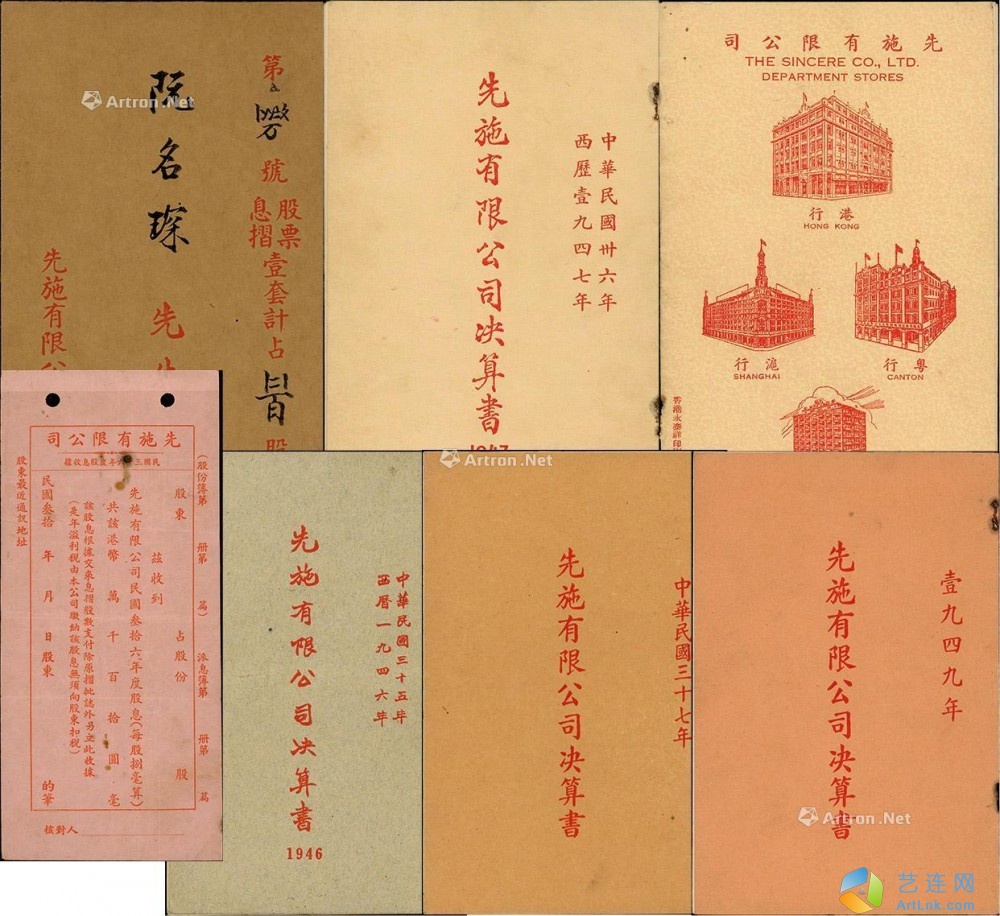 第
號
股票
息摺
壹套計占
股
阮名琛
先
先施有限公
先施有限公司決算書
中華民國卅六年
西歷壹九四七年
1947
先施有限公司
THE SINCERE CO., LTD.
DEPARTMENT STORES
港行
HONG KONG
滬行
SHANGHAI
粵行
CANTON
先施有限公司
(股份簿第 册第 篇)
派息簿第 册第 篇
股東 占股份 股
茲收到
先施有限公司民國叁拾六年度股息(每股捌毫算)
共該港幣 萬 千 百 拾 圓 毫
該股息根據交來息摺股數支付除原摺批誌外另立此收據
(是年溢利稅由本公司繳納該股息無須向股東扣稅)
民國叁拾 年 月 日股東 的筆
股東最近通訊地址
核對人
中華民國三十五年
西曆一九四六年
先施有限公司決算書
1946
中華民國三十七年
先施有限公司決算書
壹九四九年
先施有限公司決算書
Artron.Net
Artron.Net
Artron.Net
Artron.Net
艺连网
ArtLnk.com